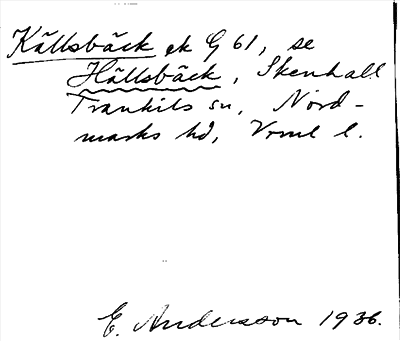 Källsbäck ek G 61, se
Hällsbäck, Skenhall
Trankils sn, Nord-
marks hd, Vrml l.
E. Andersson 1936.